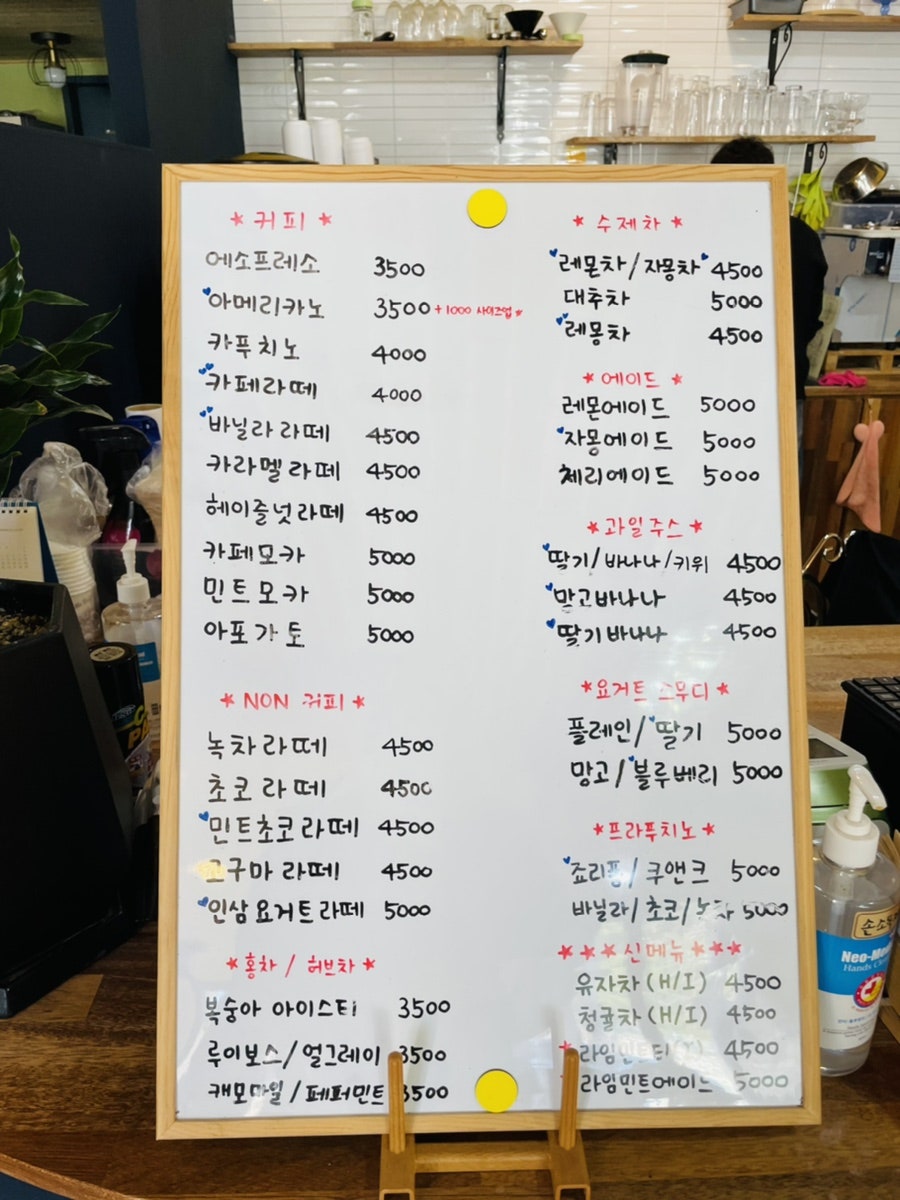 ★ 커피 ★
에소프레소 3500
아메리카노 3500 +1000 사이즈업★
카푸치노 4000
카페라떼 4000
바닐라 라떼 4500
카라멜 라떼 4500
헤이즐넛 라떼 4500
카페모카 5000
민트 모카 5000
아포가토 5000
★ NON 커피 ★
녹차 라떼 4500
초코 라떼 4500
민트초코 라떼 4500
고구마 라떼 4500
인삼 요거트 라떼 5000
★ 홍차 / 허브차 ★
복숭아 아이스티 3500
루이보스/얼그레이 3500
캐모마일/페퍼민트 3500
★ 수제차 ★
레몬차/자몽차 4500
대추차 5000
레몽차 4500
★ 에이드 ★
레몬에이드 5000
자몽에이드 5000
체리에이드 5000
★ 과일주스 ★
딸기/바나나/키위 4500
망고바나나 4500
딸기바나나 4500
★ 요거트 스무디 ★
플레인/딸기 5000
망고/블루베리 5000
★ 프라푸치노 ★
죠리퐁/쿠앤크 5000
바닐라/초코/녹차 5000
★★★ 신메뉴 ★★★
유자차 (H/I) 4500
청귤차 (H/I) 4500
★ 라임민트티 (I) 4500
라임민트에이드 5000
손소독
Neo-Me
Hands Cle